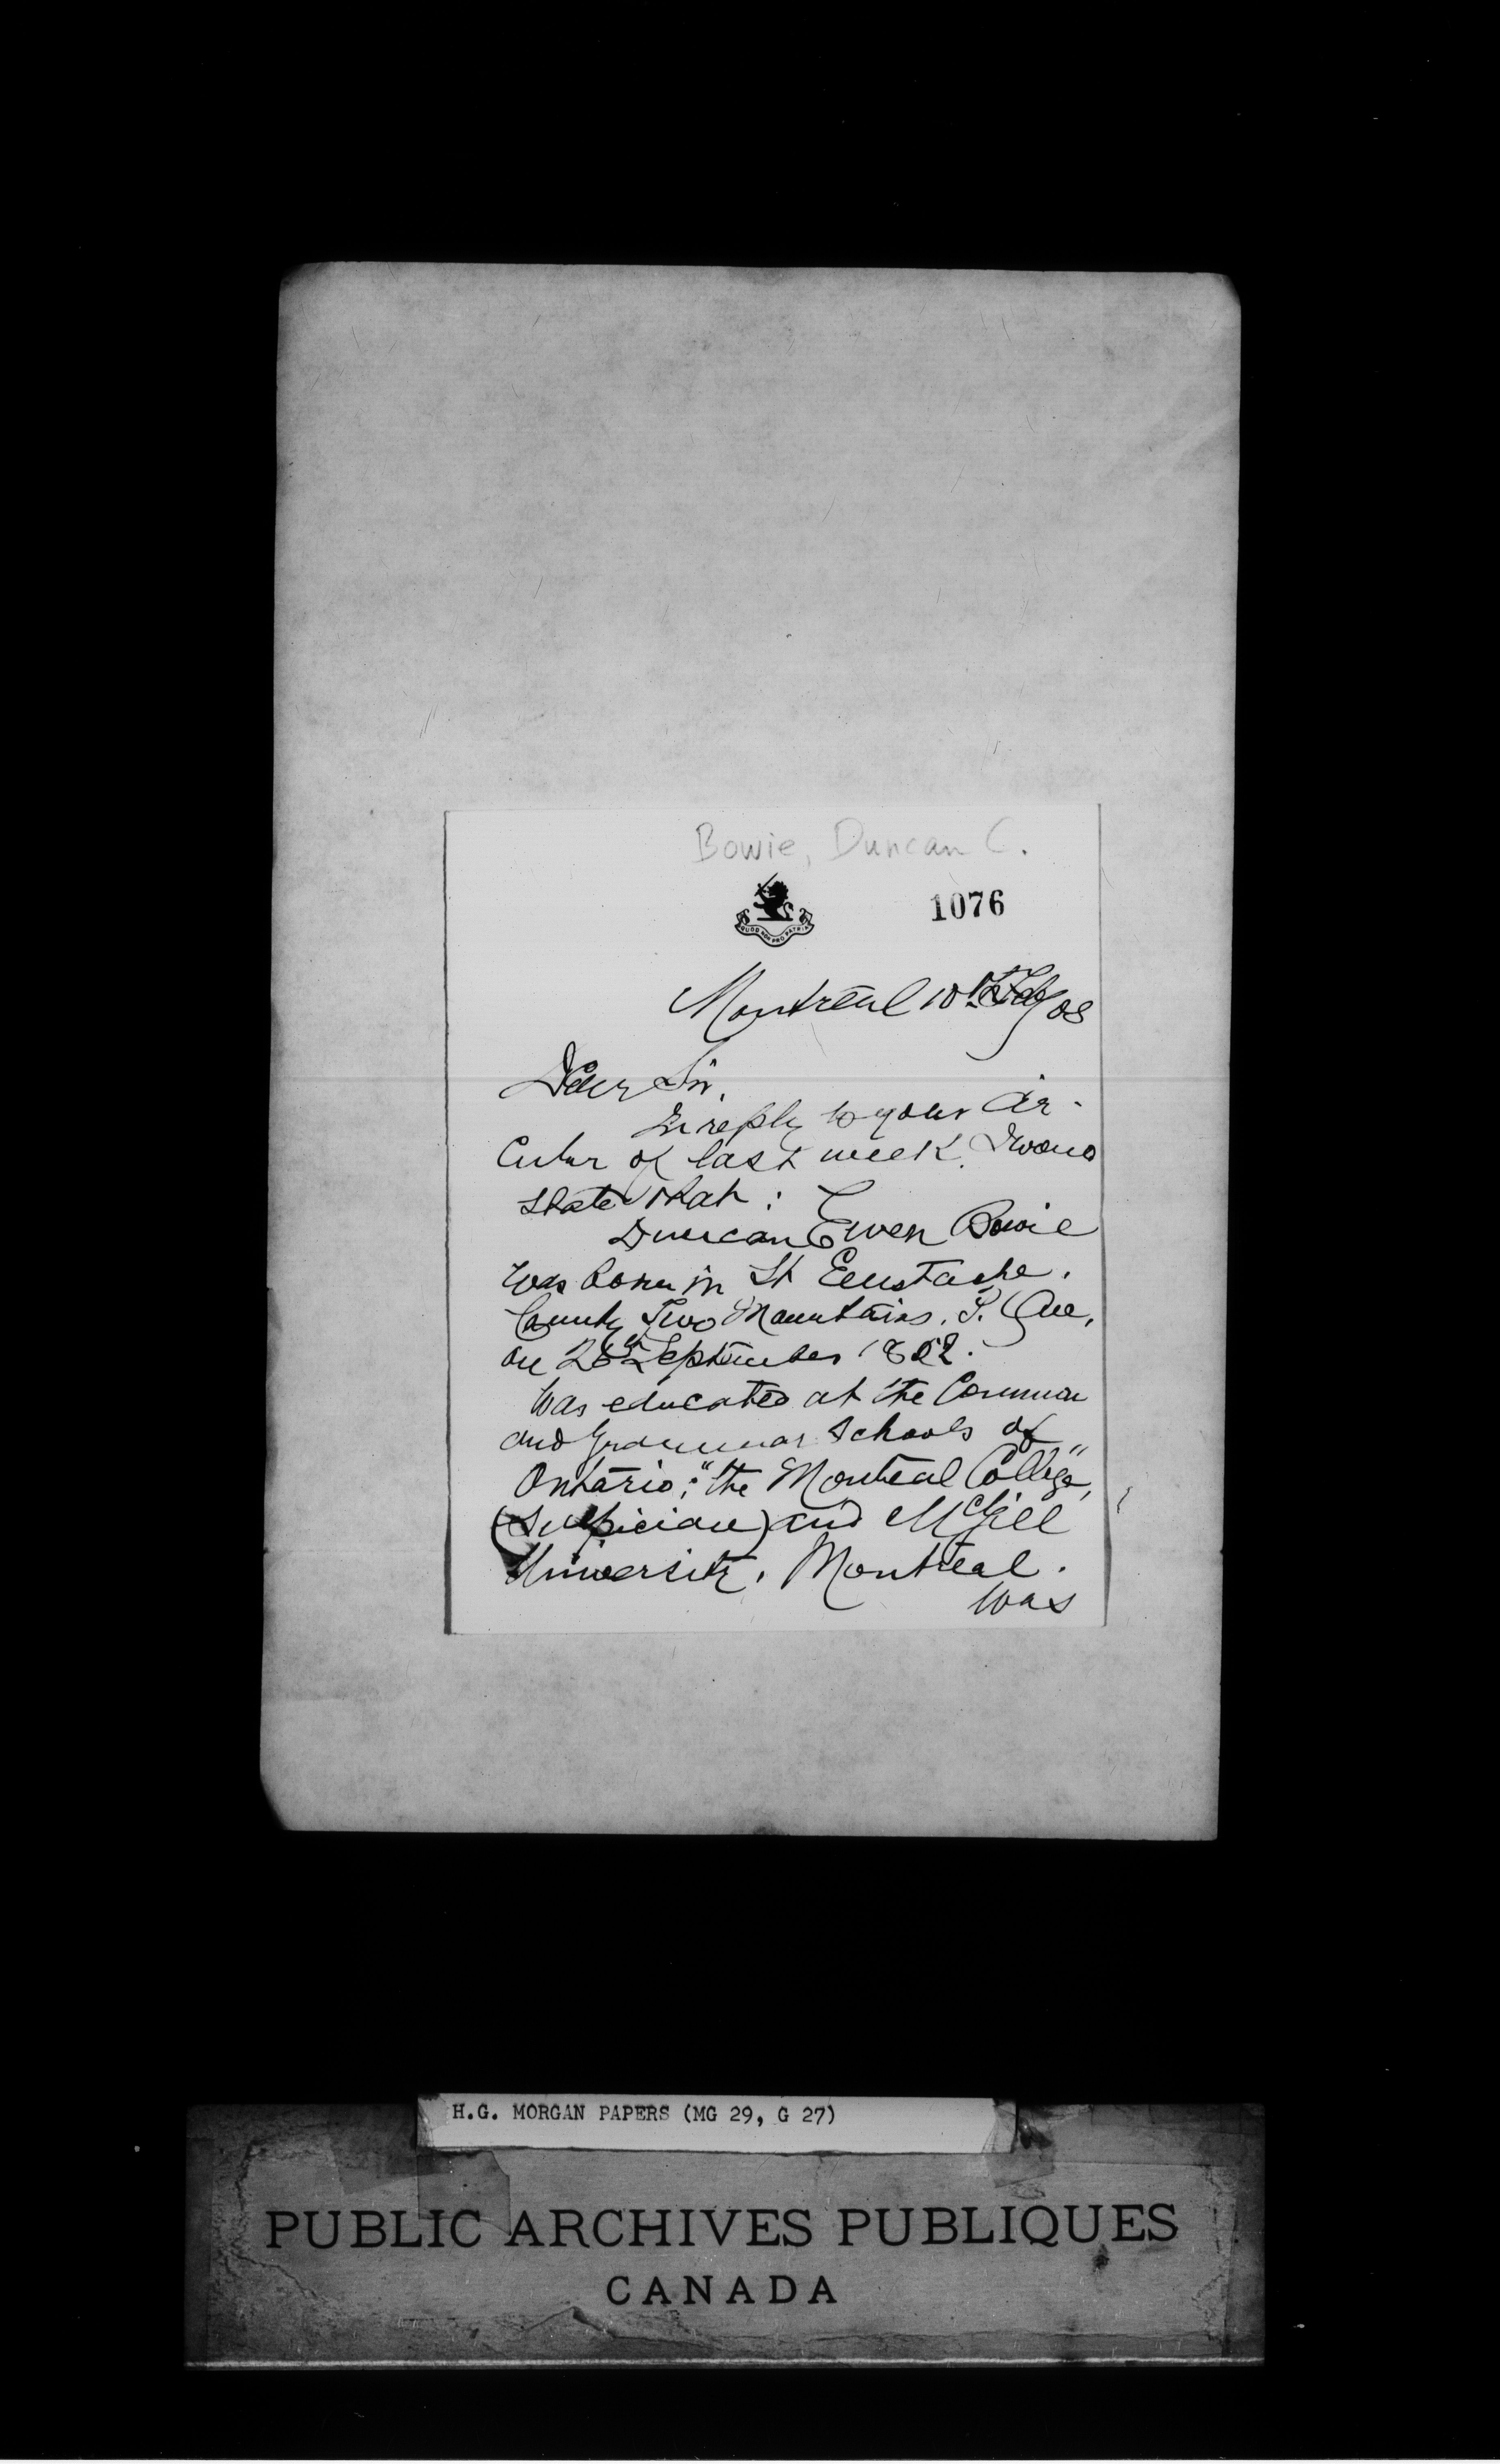 Bowie, Duncan C.
QUOD NON PRO PATRIA
1076
Montreal 10th Feby 08
Dear Sir,
In reply to your Cir-
cular of last week. I would
state that :
Duncan Ewen Bowie
was born in St Eustache.
County Two Mountains. P. Que,
on 26th September 1852.
Was educated at the Common
and Grammar Schools of
Ontario; "the Montreal College",
(Sulpician) and McGill
University, Montreal.
Was
H.G. MORGAN PAPERS (MG 29, G 27)
PUBLIC ARCHIVES PUBLIQUES
CANADA